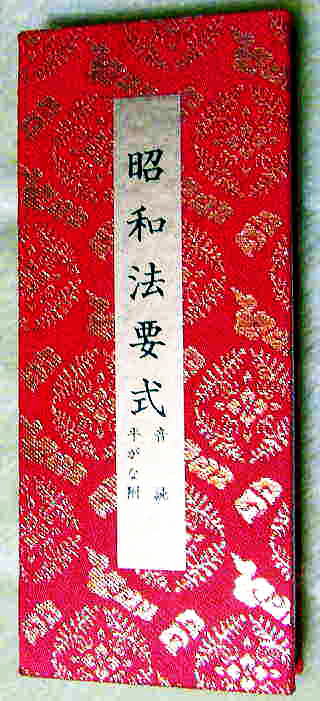 昭和法要式
音純
平がな附